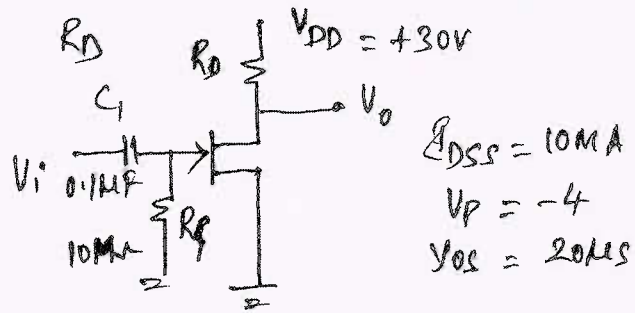 RD
RD VDD = +30V
C1
Vo
Vi 0.1MF
10M RG
IDSS = 10MA
VP = -4
YOS = 20μS